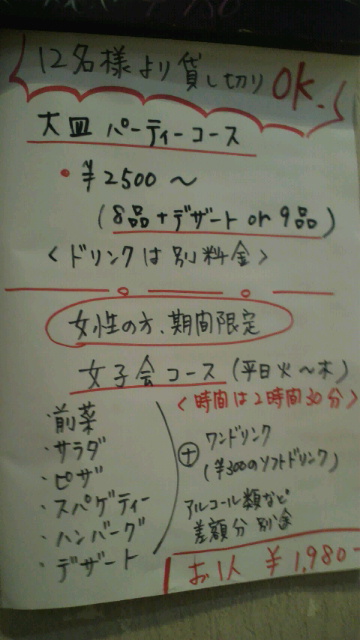 12名様より貸し切りOK.
大皿 パーティーコース
・¥2500〜
(8品+デザート or 9品)
<ドリンクは別料金>
女性の方、期間限定
女子会コース (平日火〜木)
<時間は2時間30分>
・前菜
・サラダ
・ピザ
・スパゲティー
・ハンバーグ
・デザート
⊕ ワンドリンク
(¥300のソフトドリンク)
アルコール類など
差額分 別途
お1人 ¥1,980-